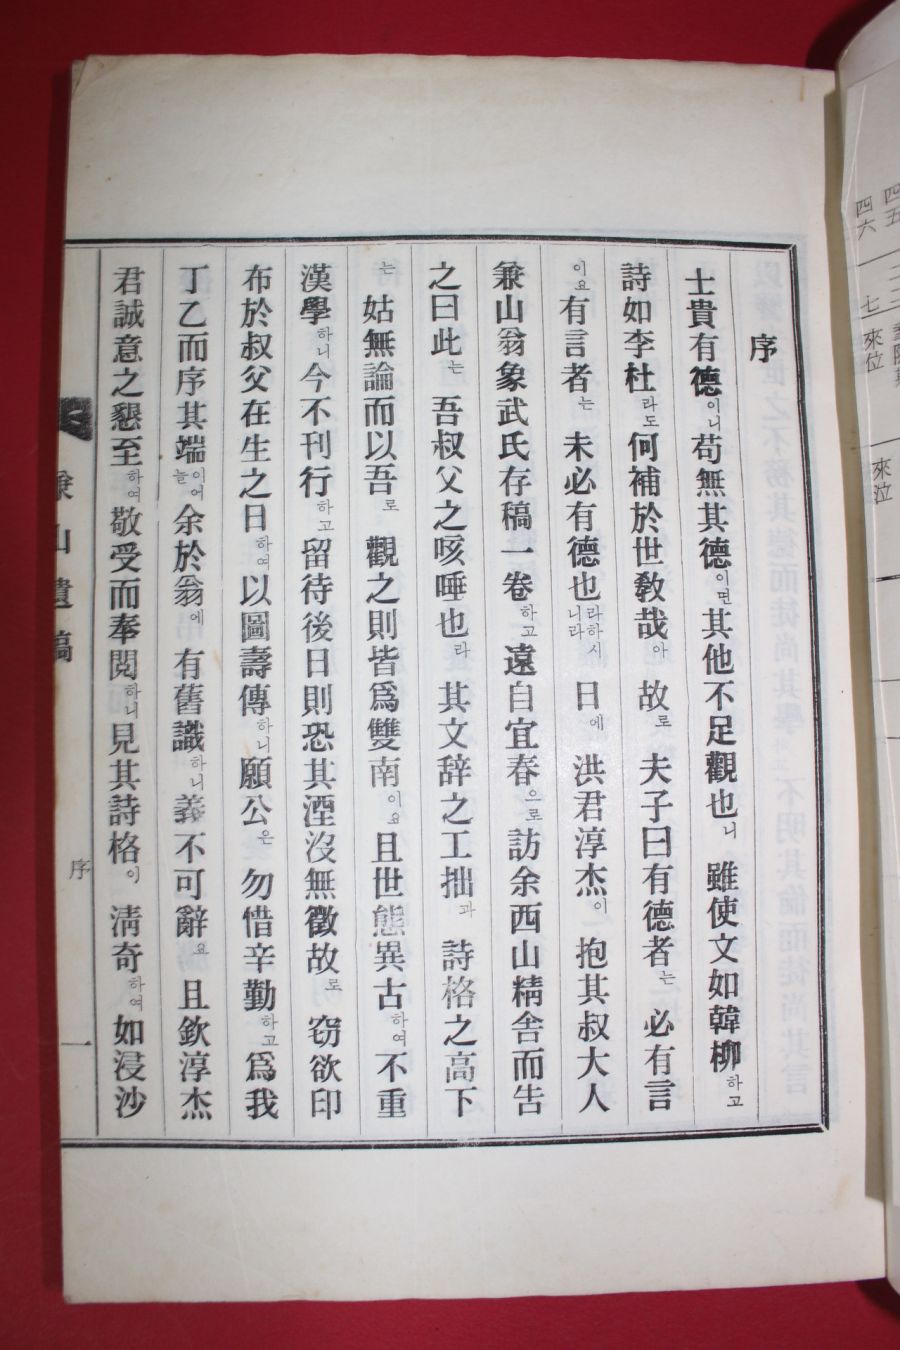 序
士貴有德이니苟無其德이면其他不足觀也니雖使文如韓柳하고
詩如李杜라도何補於世敎哉아故로夫子曰有德者는必有言
이요有言者는未必有德也라하시니라日에洪君淳杰이抱其叔大人
兼山翁象武氏存稿一卷하고遠自宜春으로訪余西山精舍而告
之曰此는吾叔父之咳唾也라其文辞之工拙과詩格之高下
는姑無論而以吾로觀之則皆爲雙南이요且世態異古하여不重
漢學하니今不刊行하고留待後日則恐其湮沒無徵故로窃欲印
布於叔父在生之日하여以圖壽傳하니願公은勿惜辛勤하고爲我
丁乙而序其端이어늘余於翁에有舊識하니義不可辭요且欽淳杰
君誠意之懇至하여敬受而奉閱하니見其詩格이淸奇하여如浸沙
兼山遺稿
序
一
四五
四六 七 來位
來泣